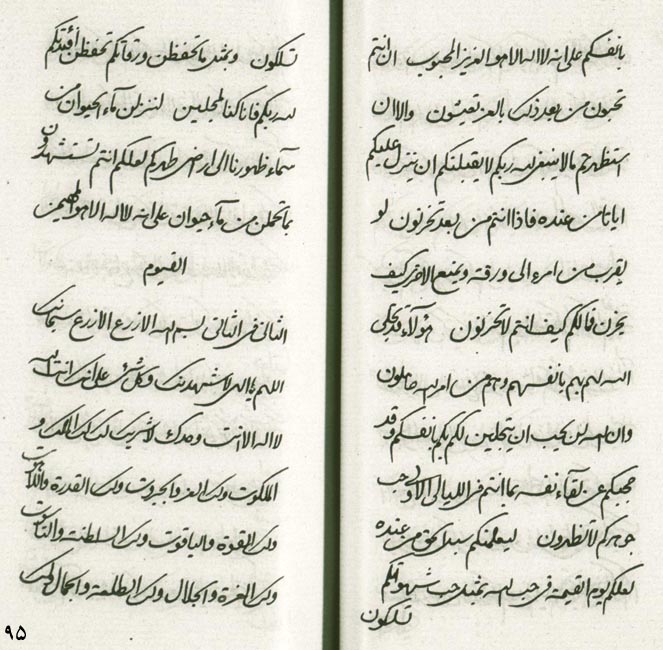 بانفسکم علی انه لا اله الا هو العزیز المحبوب ان انتم
تحبون من بعد ذلک بالعز تعیشون والا ان
استظهرتم مالا ینبغی لله ربکم لا یقبلنکم ان ینزل علیکم
ایاتا من عنده فاذا انتم من بعد تحزنون لو
یقرب من امرء الی ورقته ویمنع الاخر کیف
یحزن فمالکم کیف انتم لا تحزنون هؤلاء قد تجلی
الله لهم بهم بانفسهم وهم من امر الله
وان الله لن یحب ان یتجلین لکم بکم بانفسکم وقد
حجبکم عن لقاء نفسه بما انتم فی اللیالی الاولی حب
جوهرکم لا تظهرون لیعلمنکم سبیل الحق من عنده
لعلکم یوم القیمة فی حب الله بمثل حب شهواتکم
تسلکون
تسلکون وبمثل ما تحفظن ورقاتکم تحفظن افئدتکم
لله ربکم فانا کنا لمجلین لننزلن ماء الحیوان من
سماء ظهورنا الی ارض طهرکم لعلکم انتم تستشهدون
بما تحملن من ماء حیوان علی انه لا اله الا هو المهیمن
القیوم
الثانی فی الثانی بسم الله الازرع الازرع سبحانک
اللهم یا الهی لاشهدنک وکل شیء علی انک انت الله
لا اله الا انت وحدک لا شریک لک لک الملک و
الملکوت ولک العز والجبروت ولک القدرة واللاهوت
ولک القوة والیاقوت ولک السلطنة والناسوت
ولک العزة والجلال ولک الطلعة والجمال ولک
۹۵